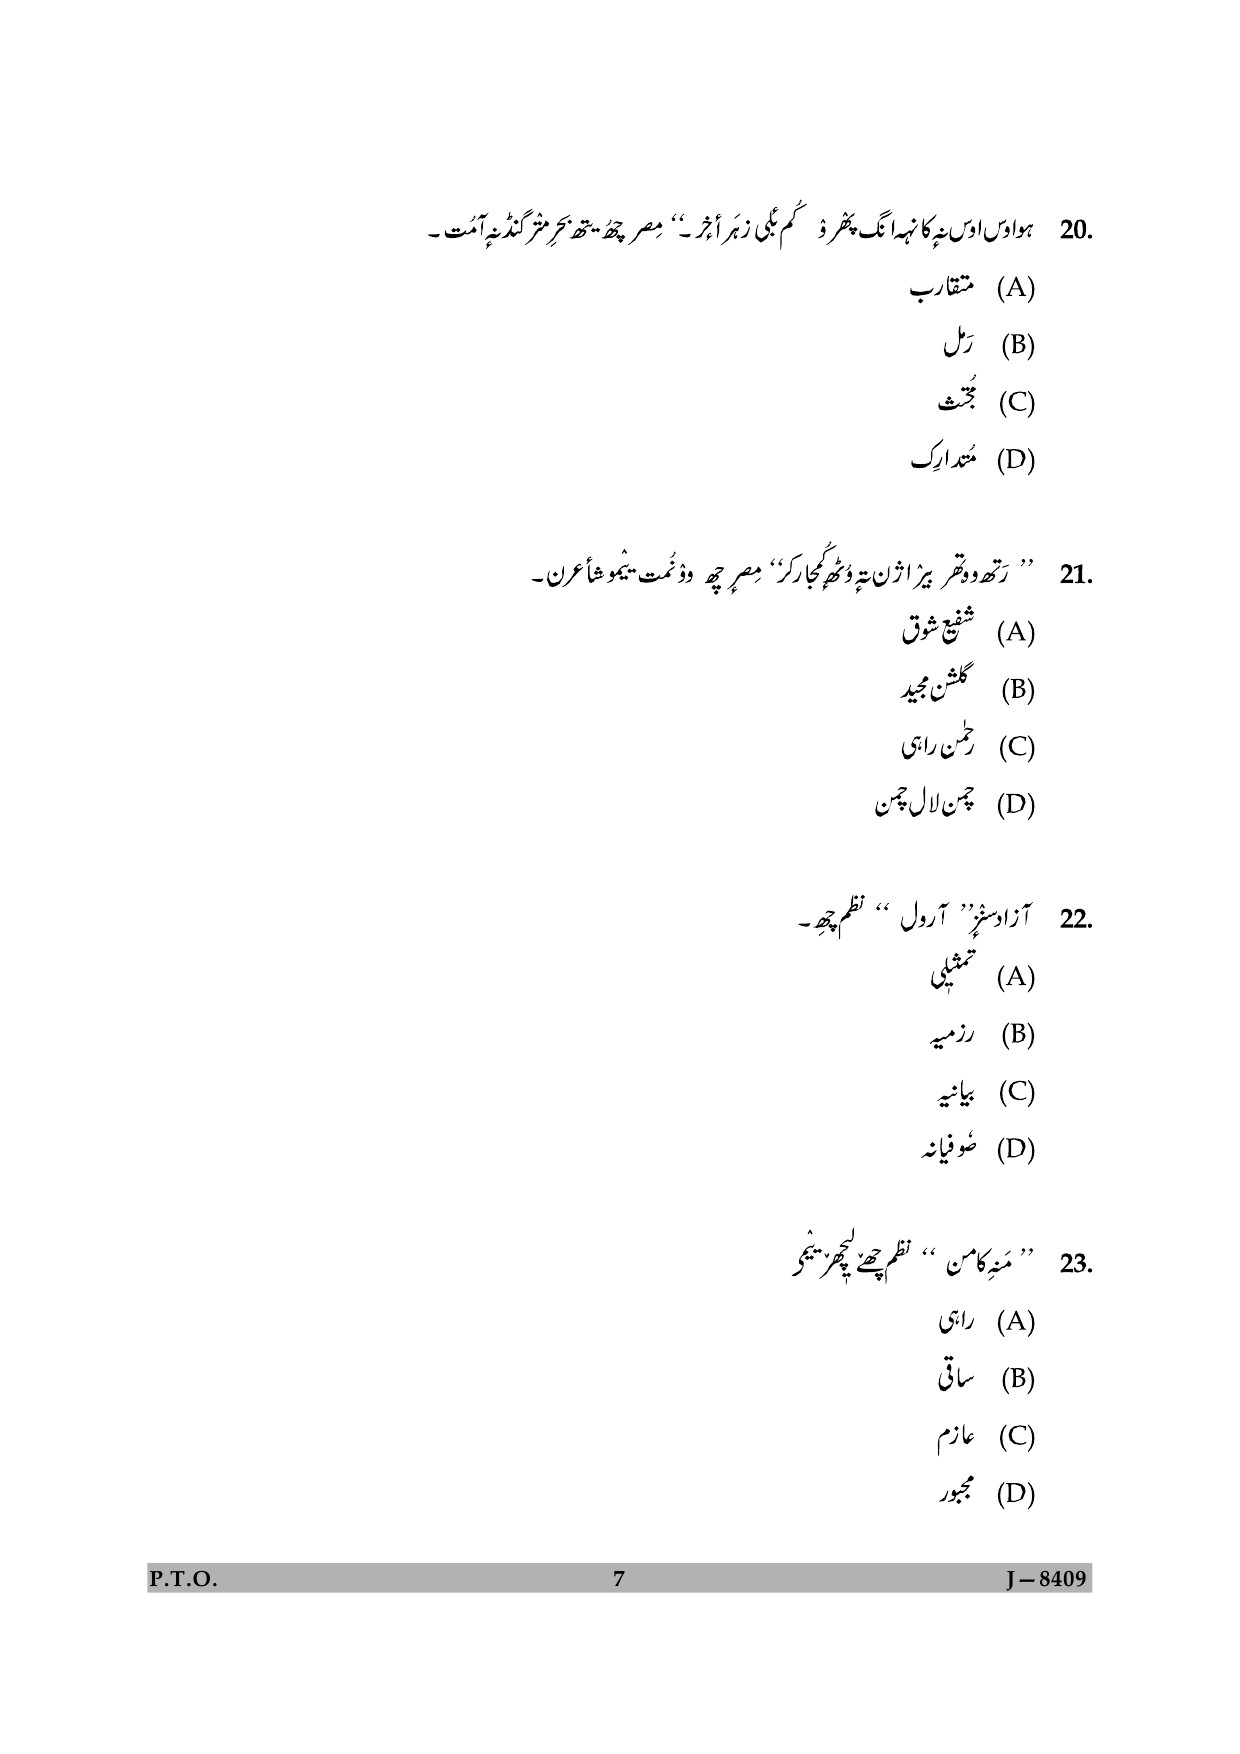 20. ہواوس اوس نہٕ کانہہ انگ پھٔر ؤ کُم بُلی زہَر أخٕر ۔‘‘ مِصر چھُ یتھ بحرِ منٛز گنڈنہٕ آمُت ۔
(A) متقارب
(B) رَمل
(C) مُجتث
(D) مُتدارِک
21. ’’ رَتھ ووتھر بیٚر اژن تہٕ وُٹھ کُمجار کر‘‘ مِصرٕ چھِ ووٚنمُت یِیٚمو شأعرن ۔
(A) شفیع شوق
(B) گلشن مجید
(C) رحمٰن راہی
(D) چمن لال چمن
22. آزاد سنٛزٕ ’’ آرول ‘‘ نظم چھِ ۔
(A) تمثیلی
(B) رزمیہ
(C) بیانیہ
(D) صُوفیانہ
23. ’’ مَنہِ کامن ‘‘ نظم چھےٚ لیٖچھمٕژ یٔمۍ
(A) راہی
(B) ساقی
(C) عازم
(D) مجبور
P.T.O. 7 J – 8409